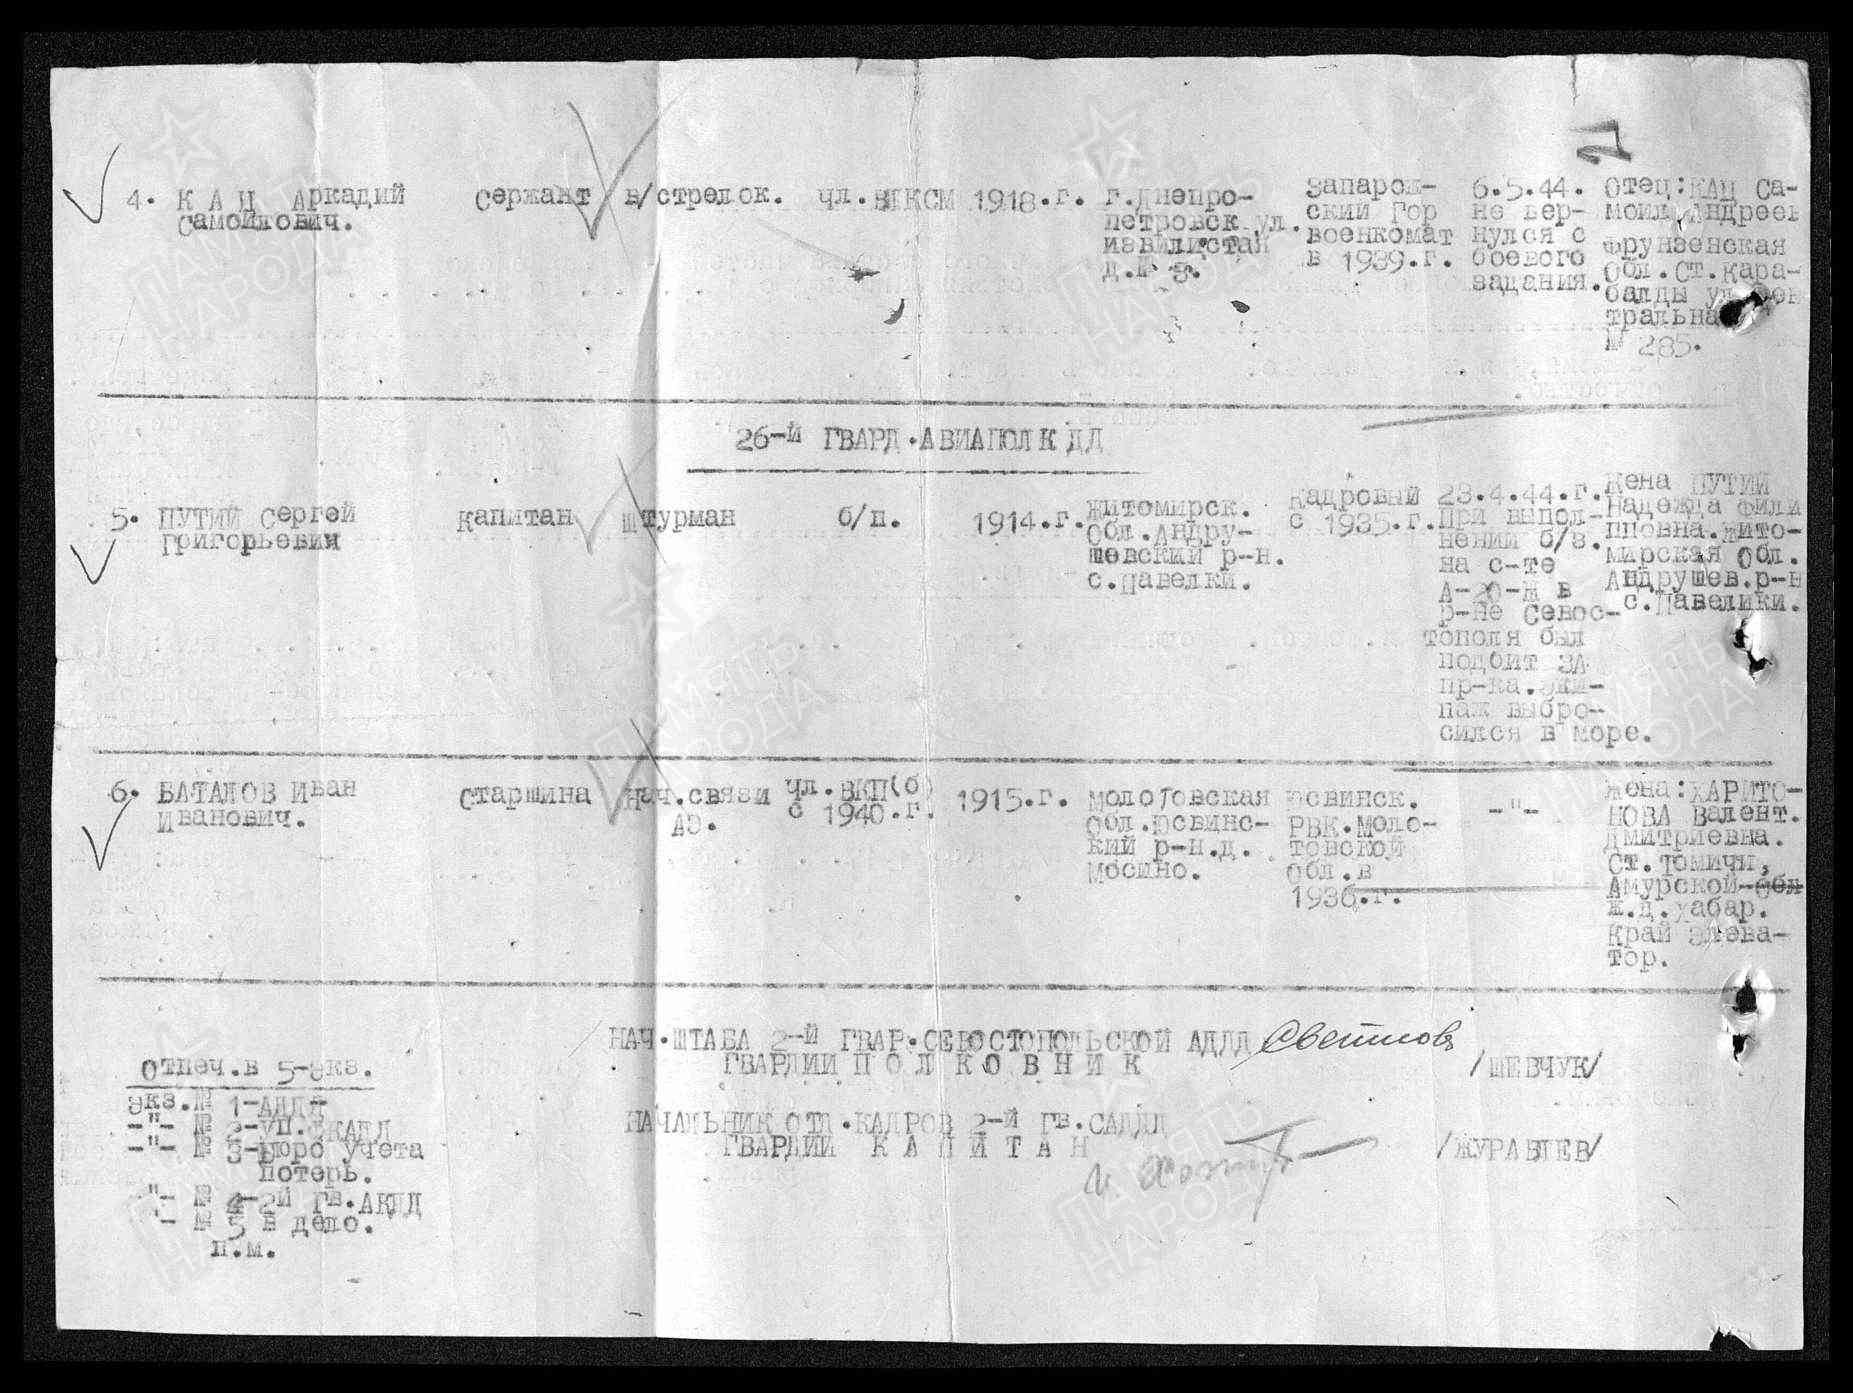 4. КАЦ Аркадий Сержант в/стрелок. Чл.ВЛКСМ 1918.г.
Самойлович.
г.Днепро-
петровск ул.
д.№ 3.
Запарож-
ский Гор
военкомат
в 1939.г.
6.5.44.
не вер-
нулся с
боевого
задания.
Отец:КАЦ Са-
моил Андреев
Фрунзенская
Обл.Ст.Кара-
балды ул.
тральная
№ 285.
26-й ГВАРД.АВИАПОЛК ДД
5. ПУТИЙ Сергей Капитан Штурман б/п. 1914.г.
Григорьевич
Житомирск.
Обл.Андру-
шевский р-н.
с.Павелки.
Кадровый
с 1935.г.
23.4.44.г.
При выпол-
нении б/з.
на с-те
А-20-Ж в
р-не Севос-
тополя был
подбит ЗА
пр-ка.Эки-
паж выбро-
сился в море.
Жена ПУТИЙ
Надежда Фили
пповна.Жито-
мирская Обл.
Андрушев.р-н
с.Павелики.
6. БАТАЛОВ Иван Старшина Нач.связи Чл.ВКП(б) 1915.г.
Иванович. АЭ. с 1940.г.
Молотовская
Обл.Юсвинс-
кий р-н.д.
Мосино.
Юсвинск.
РВК.Моло-
товской
Обл.в
1936.г.
-"-
Жена:ХАРИТО-
НОВА Валент.
Дмитриевна.
Ст.Томичи,
Амурской обл
ж.д.Хабар.
Край Элева-
тор.
НАЧ.ШТАБА 2-й ГВАР.СЕВОСТОПОЛЬСКОЙ АДДД
ГВАРДИИ П О Л К О В Н И К /ШЕВЧУК/
НАЧАЛЬНИК ОТД.КАДРОВ 2-й Гв.САДДД
ГВАРДИИ К А П И Т А Н /ЖУРАВЛЕВ/
Отпеч.в 5-экз.
Экз.№ 1-АДДД
-"- № 2-УП.
-"- № 3-Бюро учета
потерь.
"- № 4-2й Гв.АКДД
"- № 5 в дело.
п.м.
ПАМЯТЬ
НАРОДА
ПАМЯТЬ
НАРОДА
ПАМЯТЬ
НАРОДА
ПАМЯТЬ
НАРОДА